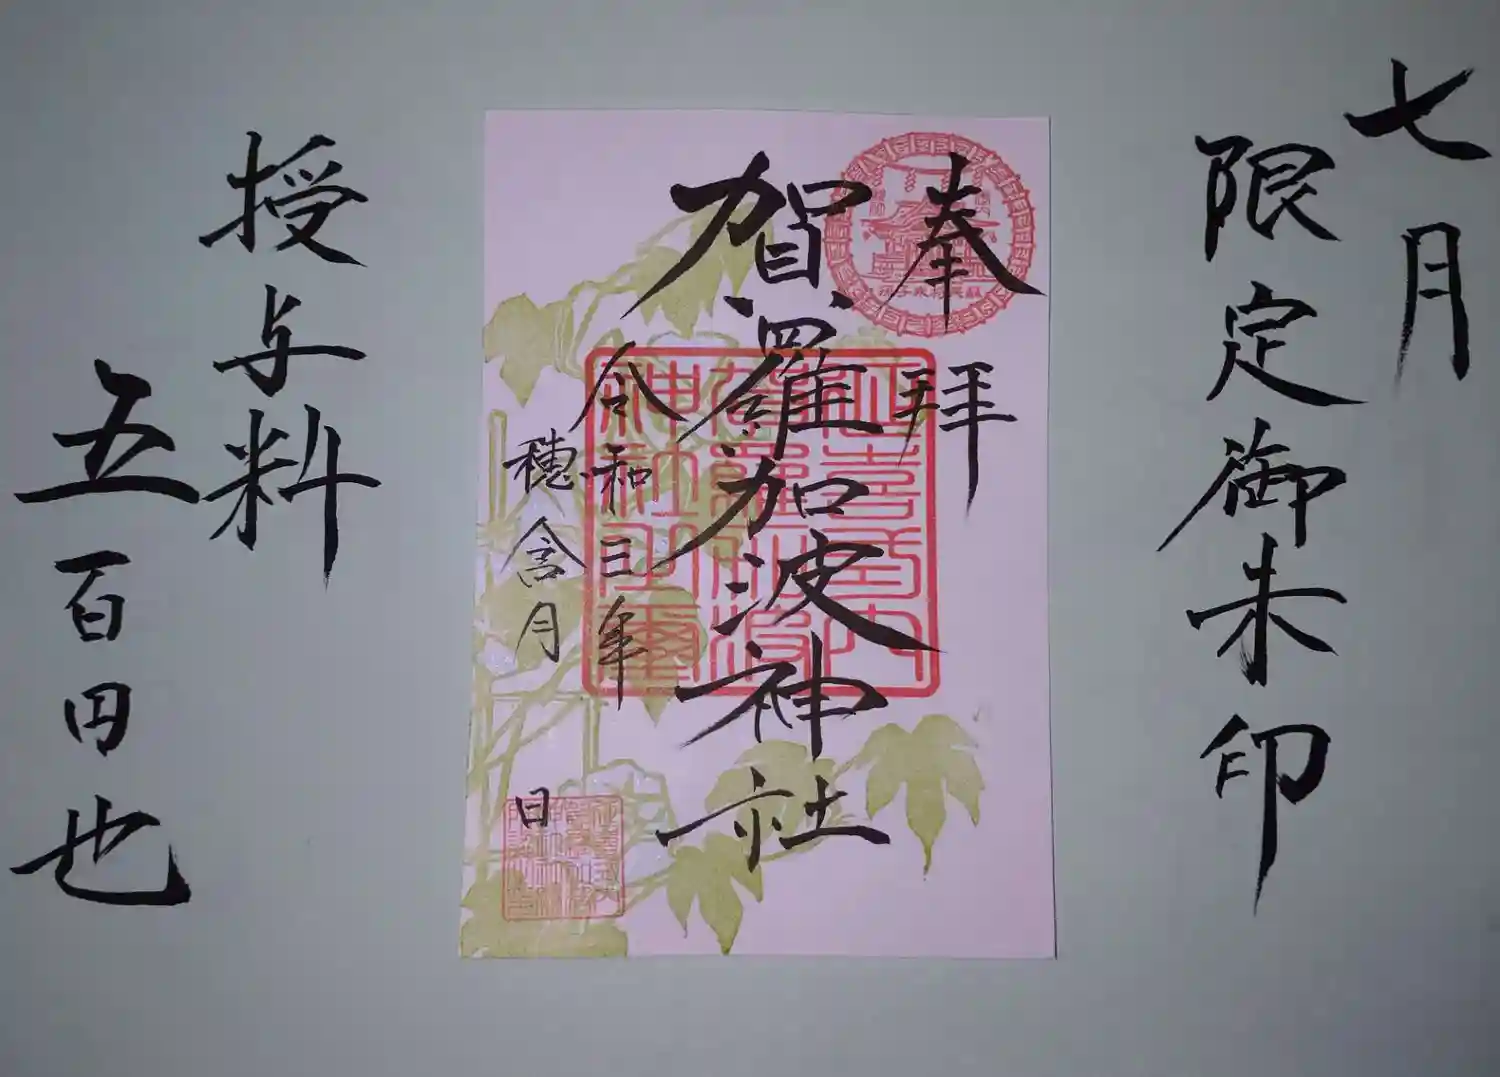 七月
限定御朱印
奉拝
賀羅加波神社
令和三年
穂含月
日
授与料
五百円也